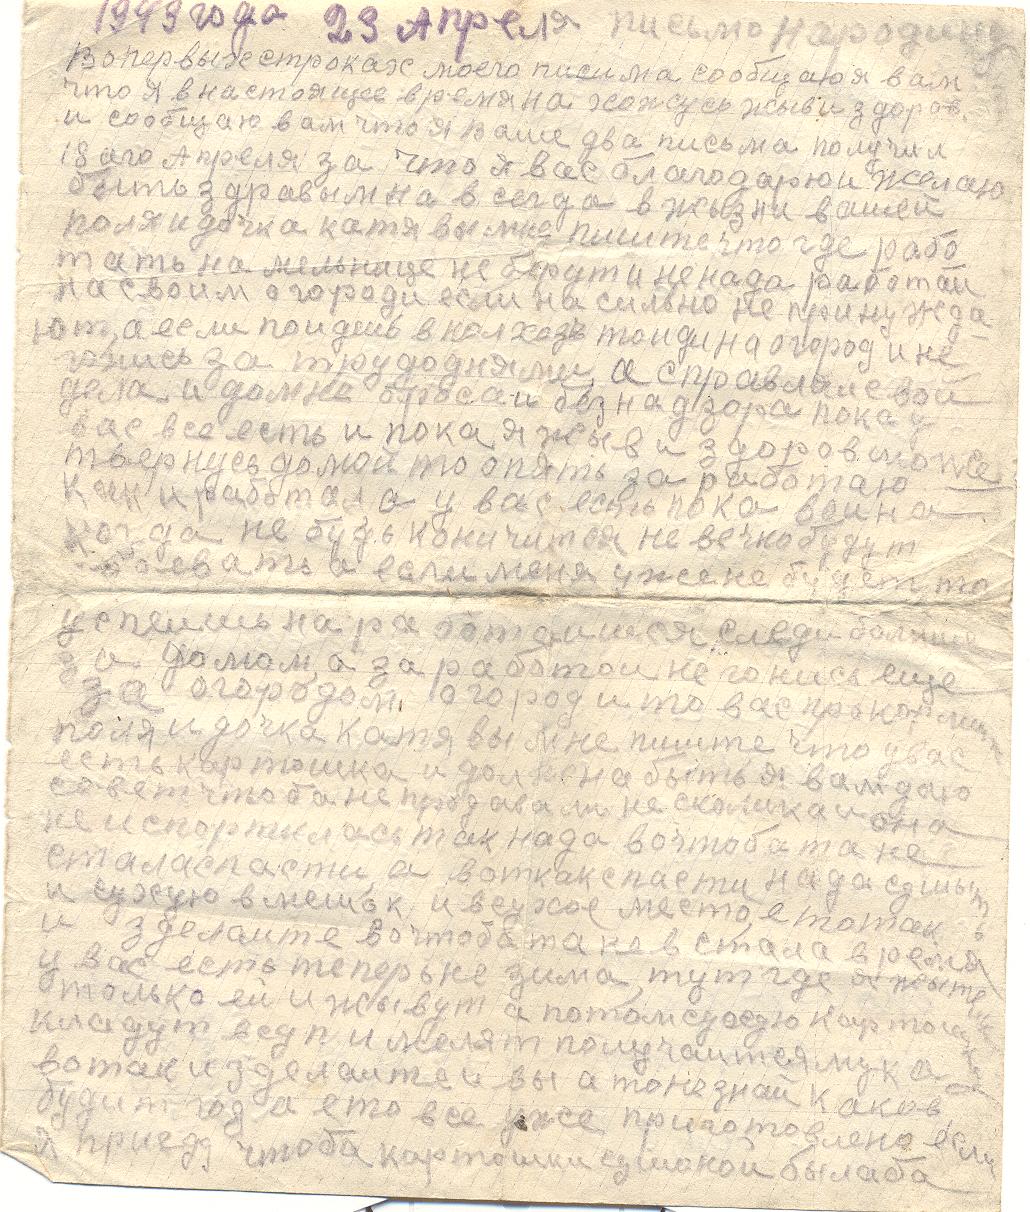 1943 года 23 Апреля письмо на родину
Вопервых строках моего писма сообщаю я вам
что я в настоящее время на хожусь жыв и здоров.
и сообщаю вам что я ваше два письма получил
18 аго Апреля за что я вас благодарю и желаю
быть здравым на всегда в жызни вашей
поля и дочка катя вы мне пишите что где рабо
тать на мельнице не берут и не нада работай
на своим огороди если на сильно не принужда
ют, а если поидешь в колхозь то иди на огород и не
гонись за трудоднями, а справляи свои
дела и дом не бросаи без надзора пока у
вас все есть и пока я жыв и здоров може
т вернусь домой то опять за работаю
как и работал а у вас есть пока воина
когда не будь кончитья не вечно будут
воевать а если меня уже не будет то
успеишь на работаишся следи больше
за домом а за работои не гонись еще
за огородом огород и то вас прокормит
поля и дочка Катя вы мне пишите что у вас
есть картошка и должна быть я вам даю
совет чтоба не продавали несколика и она
не испортилась так нада вочтоба та не
стала спасти а вот как спасти нада сушыть
и сухую в мешък и в сухое место етотак
и зделаите вочтоба та не встала время
у вас есть теперь не зима тут где я жыте
только ей и жывут а потом сухую картошку
кладут в суп и мелят получаится мука
вотак и зделаите и вы а то незнай каков
будит год а ето все уже приготовлено если
я приеду чтоба картошки сушоной былаба